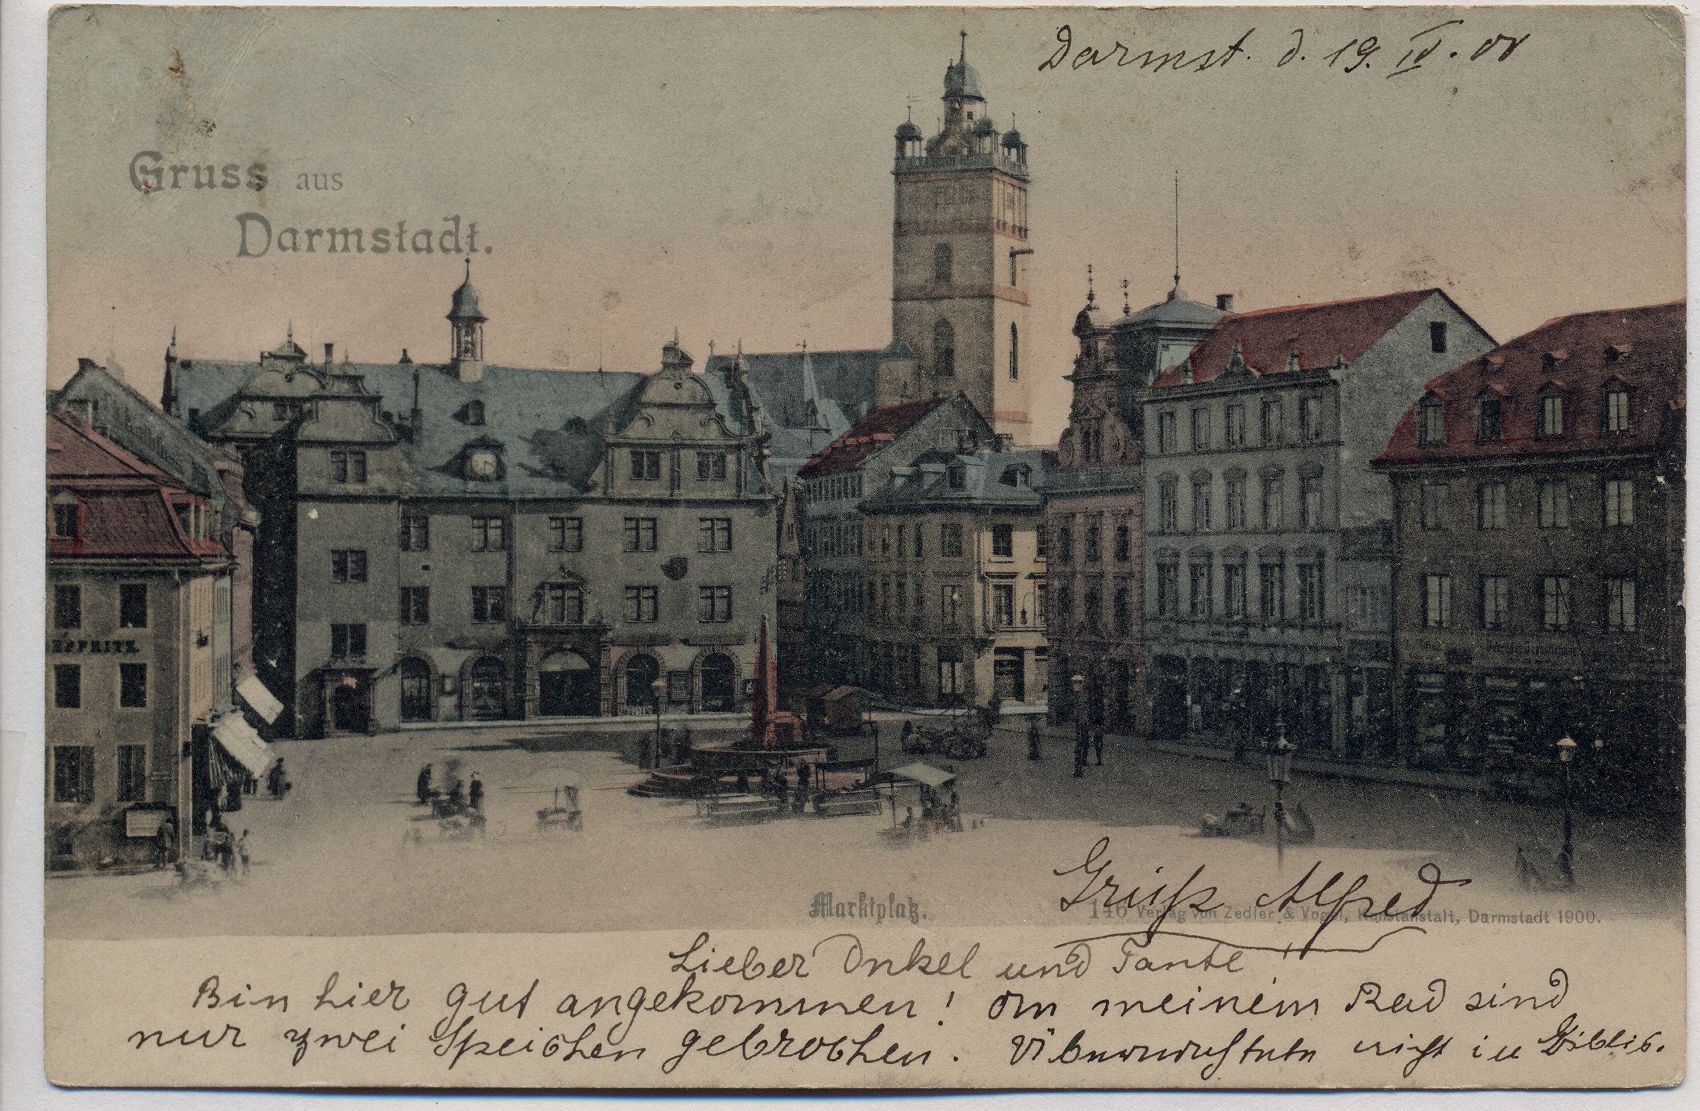 Darmst. d. 19. IV. 01
Gruss aus
Darmstadt.
EPFRITZ.
Marktplatz.
140 Verlag von Zedler & Vogel, Kunstanstalt, Darmstadt 1900.
Grüß Alfred
Lieber Onkel und Tante
Bin hier gut angekommen! An meinem Rad sind
nur zwei Speichen gebrochen. nicht in Biblis.